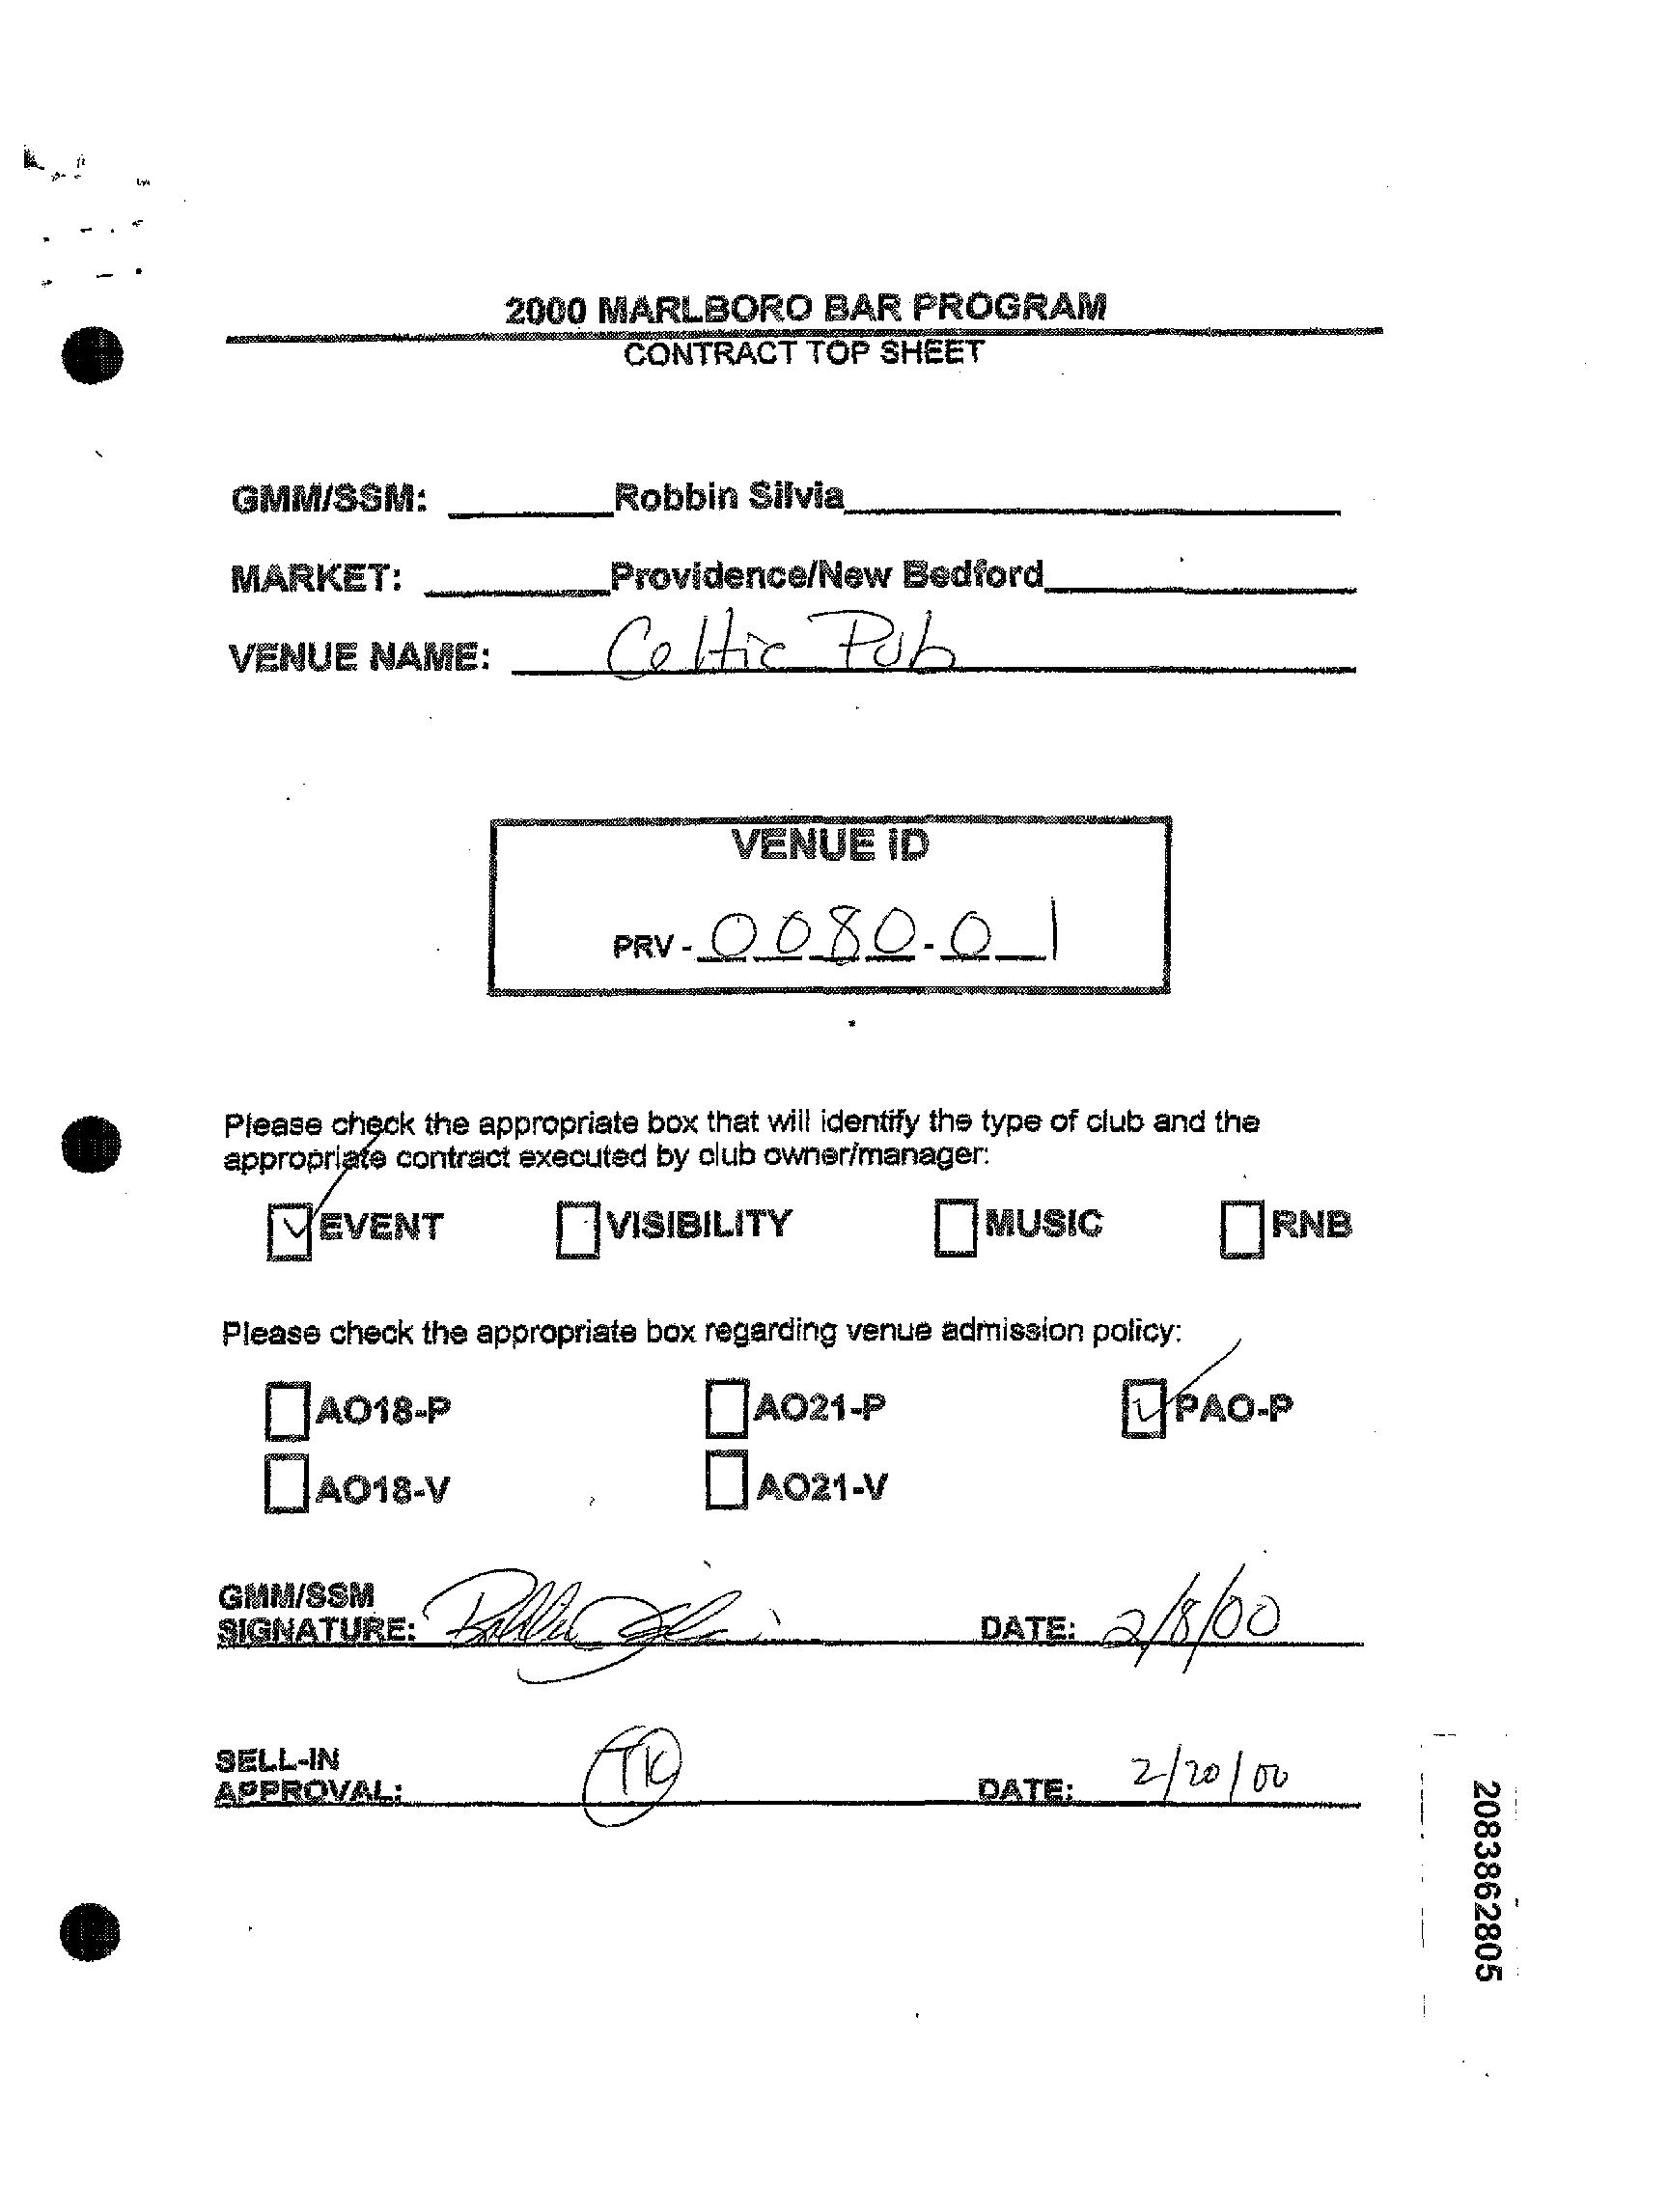 2000 MARLBORO BAR PROGRAM
CONTRACT TOP SHEET
GMM/SSM: Robbin Silvia
MARKET: Providence/New Bedford
VENUE NAME: Celtic Pub
VENUE ID
PRV - 0080-01
Please check the appropriate box that will identify the type of club and the
appropriate contract executed by club owner/manager:
EVENT VISIBILITY MUSIC RNB
Please check the appropriate box regarding venue admission policy:
AO18-P AO21-P PAO-P
AO18-V AO21-V
GMM/SSM
SIGNATURE: DATE: 2/8/00
SELL-IN
APPROVAL: TK DATE: 2/20/00
2083862805